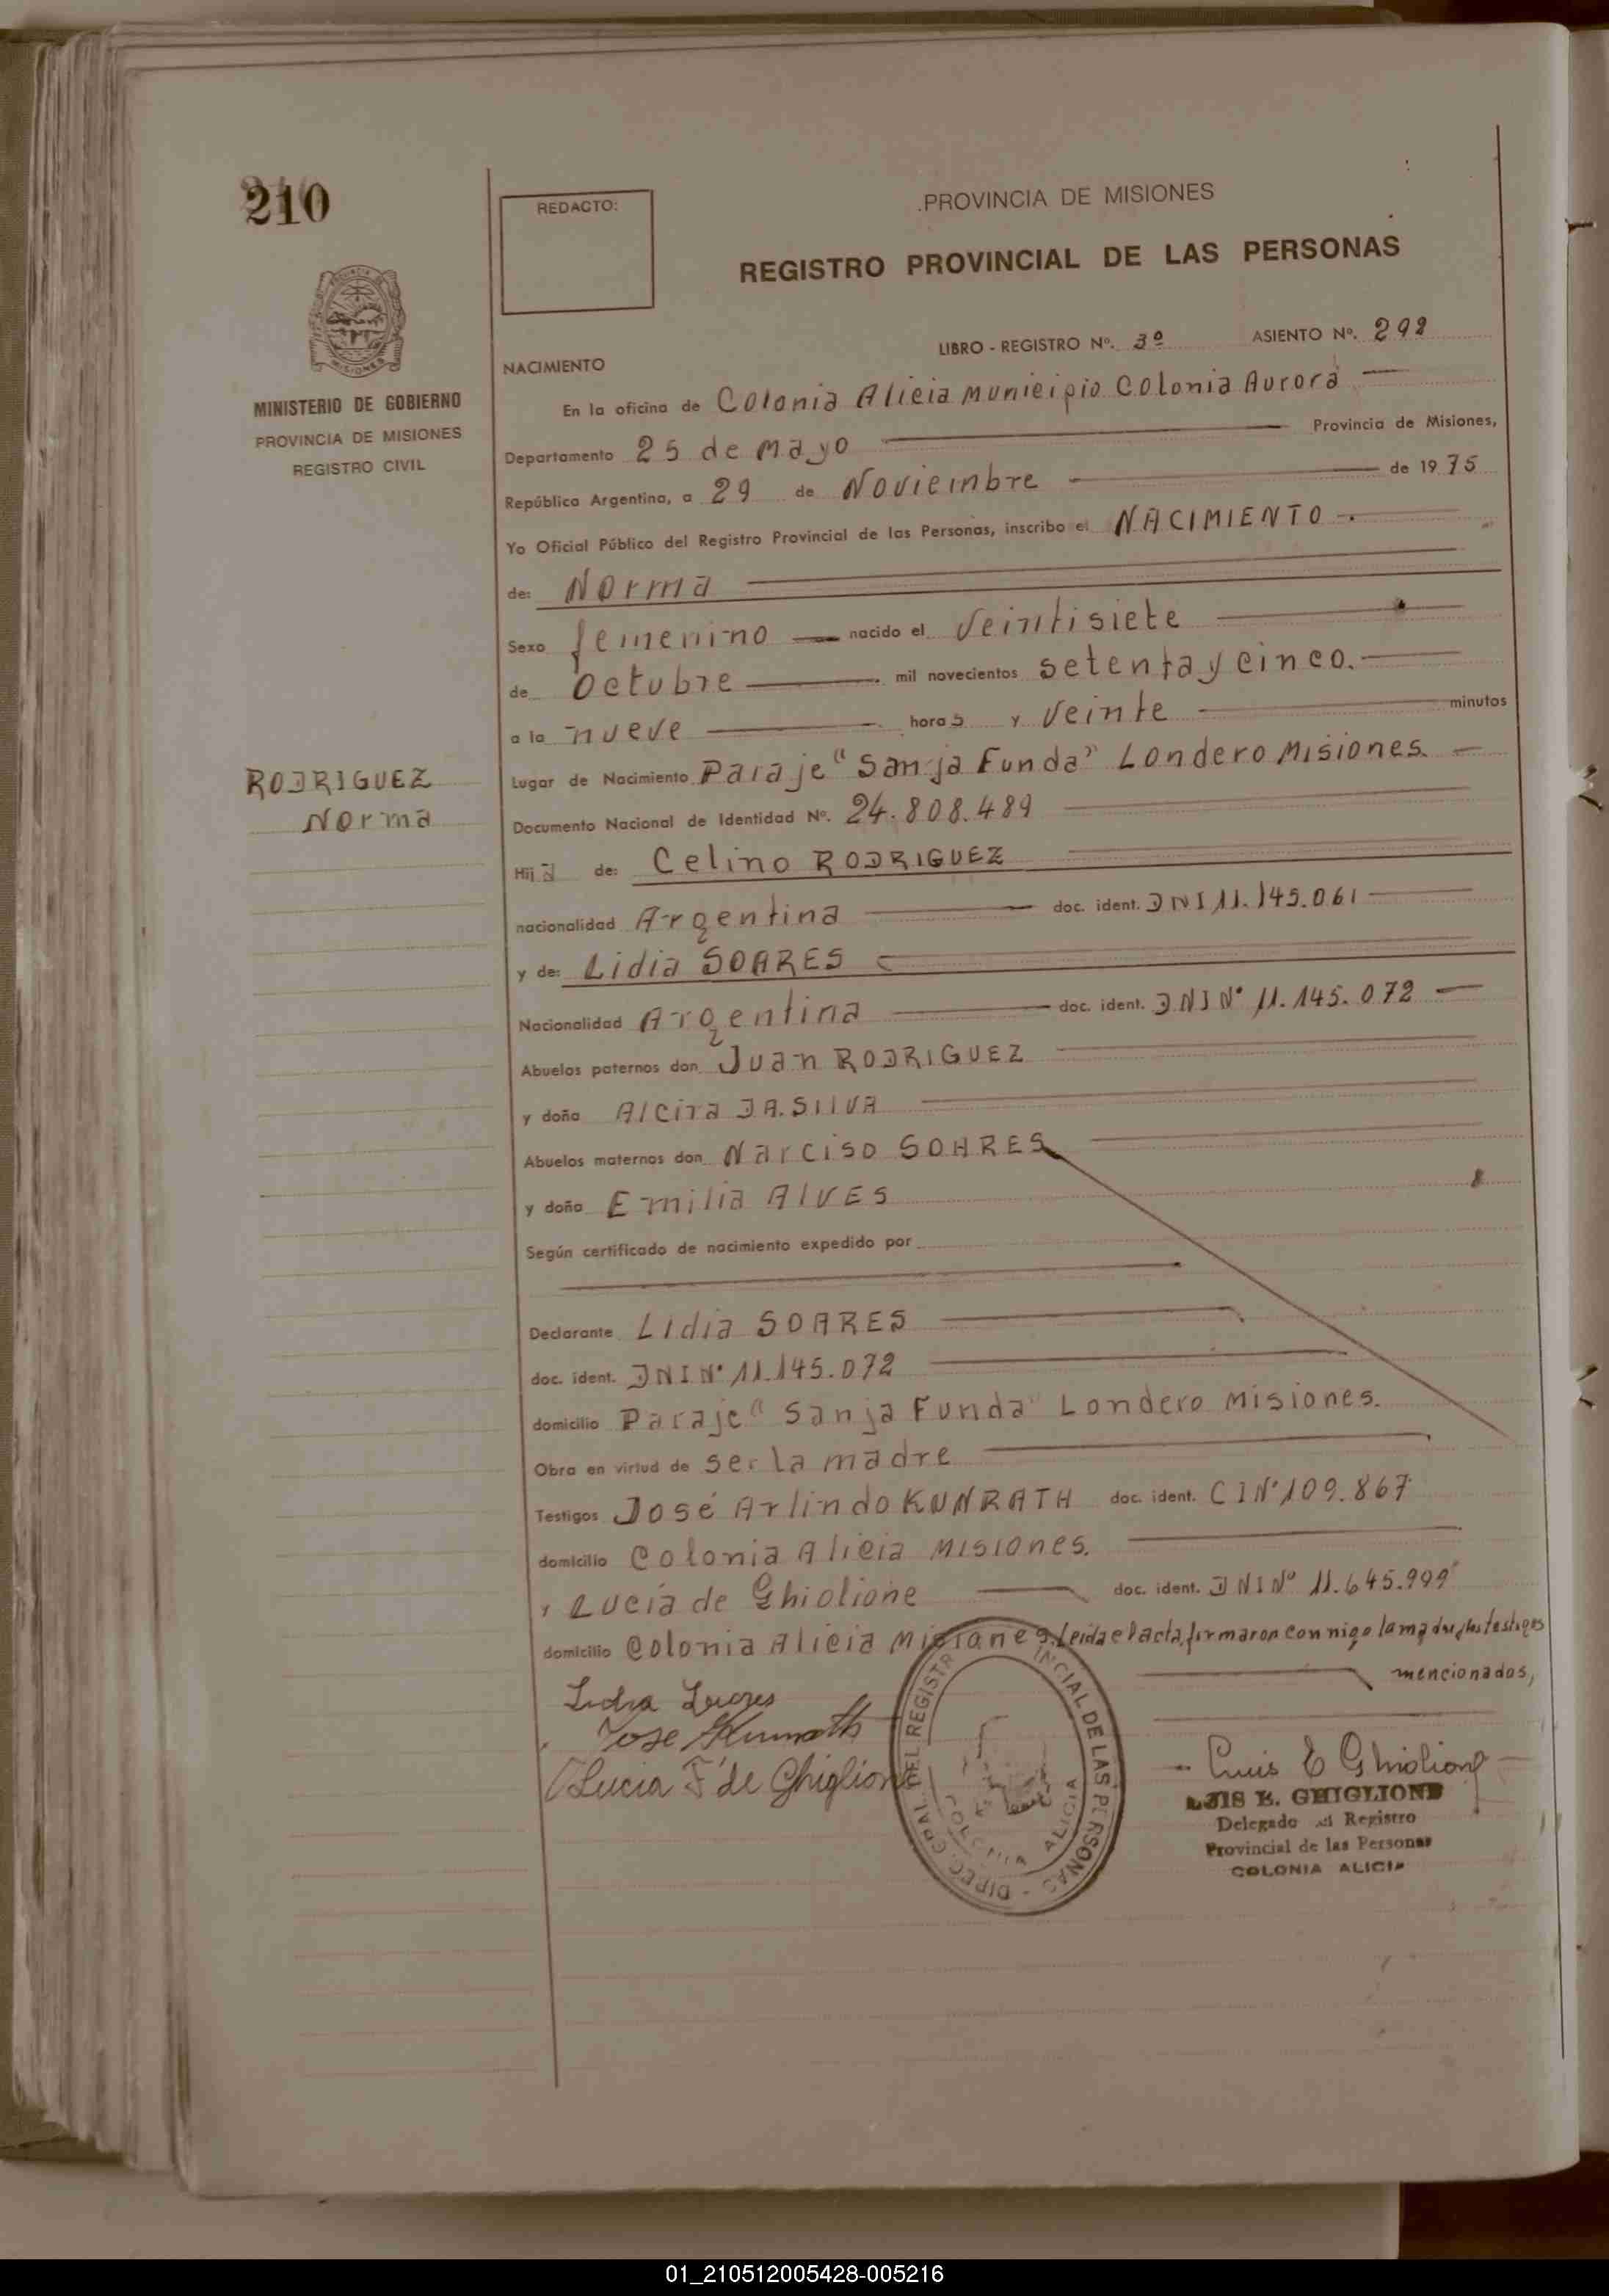 210
REDACTO:
PROVINCIA DE MISIONES
REGISTRO PROVINCIAL DE LAS PERSONAS
MINISTERIO DE GOBIERNO
PROVINCIA DE MISIONES
REGISTRO CIVIL
LIBRO - REGISTRO Nº. 3º ASIENTO Nº. 292
NACIMIENTO
En la oficina de Colonia Alicia Municipio Colonia Aurora
Departamento 25 de Mayo Provincia de Misiones,
República Argentina, a 29 de Noviembre de 1975
Yo Oficial Público del Registro Provincial de las Personas, inscribo el NACIMIENTO.
de: Norma
Sexo femenino nacido el veintisiete
de Octubre mil novecientos setenta y cinco.
a la nueve horas y veinte minutos
RODRIGUEZ
Norma
Lugar de Nacimiento Paraje "Sanja Funda" Londero Misiones.
Documento Nacional de Identidad Nº. 24.808.489
Hija de: Celino RODRIGUEZ
nacionalidad Argentina doc. ident. DNI 11.145.061
y de: Lidia SOARES
Nacionalidad Argentina doc. ident. DNI Nº 11.145.072
Abuelos paternos don Juan RODRIGUEZ
y doña Alcira DA.SILVA
Abuelos maternos don Narciso SOARES
y doña Emilia ALVES
Según certificado de nacimiento expedido por
Declarante Lidia SOARES
doc. ident. DNI Nº 11.145.072
domicilio Paraje "Sanja Funda" Londero Misiones.
Obra en virtud de ser la madre
Testigos José Arlindo KUNRATH doc. ident. CI Nº 109.867
domicilio Colonia Alicia Misiones.
y Lucía de Ghiolione doc. ident. DNI Nº 11.645.999
domicilio Colonia Alicia Misiones. Leida el acta, firmaron con nigo la madre y los testigos
mencionados,
Lidia Soares
Jose Kunrath
Lucia F de Ghiglione
DIREC. GRAL. DEL REGISTR INCIAL DE LAS PERSONAS
COLONIA ALICIA
Luis E Ghiglione
LUIS E. GHIGLIONE
Delegado del Registro
Provincial de las Personas
COLONIA ALICIA
01_210512005428-005216